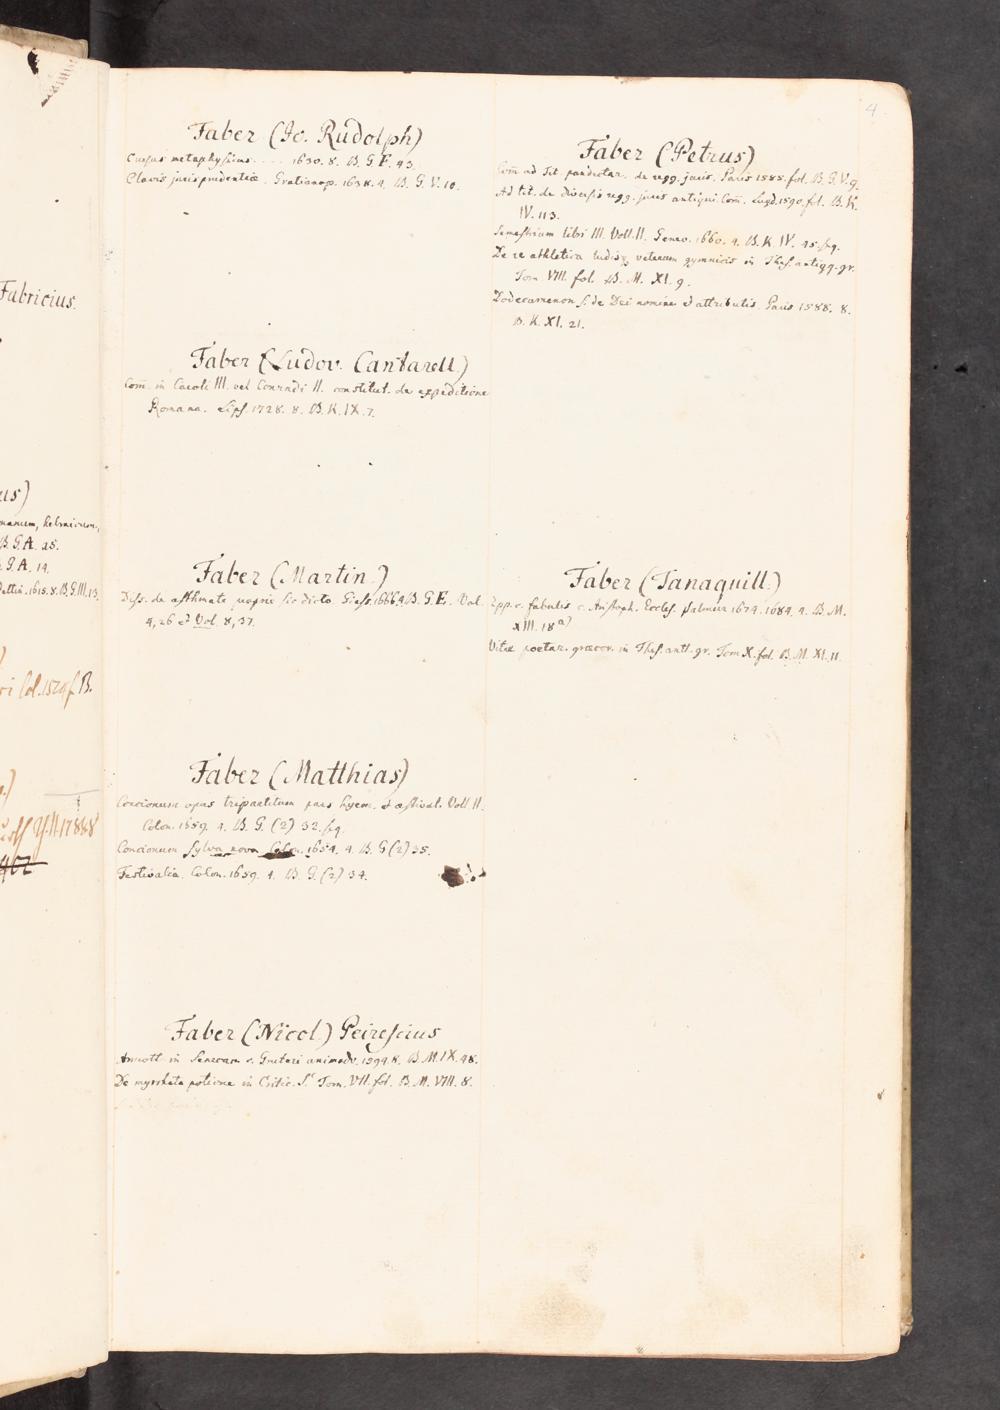 4
Faber (Jo. Rudolph)
Cursus metaphysicus .... 1630. 8. B. G. E. 43.
Clavis jurisprudentiæ. Gratianop. 1638. 4. B. G. V. 10.
Faber (Ludov. Cantarell.)
Com̄. in Caroli III. vel Conradi II. constitut. de expeditione
Romana. Lips. 1728. 8. B. K. IX. 7.
Faber (Martin.)
Diss. de asthmate proprie sic dicto. Giess. 1666. 4. B. G. E. Vol.
4, 26 et Vol. 8, 37.
Faber (Matthias)
Concionum opus tripartitum pars hyem. et æstival. Voll. II.
Colon. 1659. 4. B. G. (2) 32. sq.
Concionum Sylva nova Colon. 1654. 4. B. G (2) 35.
Festivalia. Colon. 1659. 4. B. G. (2) 34.
Faber (Nicol.) Peirescius
Annott. in Senecam c. Gruteri animadv. 1594. 8. B. M. IX. 48.
De myrrhata potione in Critic. S. Tom. VII. fol. B. M. VIII. 8.
Faber (Petrus)
Com̄ ad Tit. pandectar. de regg. juris. Paris 1585. fol. B. G. V. 9.
Ad tit. de diversis regg. juris antiqui Com̄. Lugd. 1590. fol. B. K.
IV. 113.
Semestrium libri III. Voll. II. Genev. 1660. 4. B. K. IV. 45. sq.
De re athletica ludisq. veterum gymnicis in Thes. antiqq. gr.
Tom. VIII. fol. B. M. XI. 9.
Dodecamenon s. de Dei nomine et attributis. Paris 1588. 8.
B. K. XI. 21.
Faber (Tanaquill.)
Epp. c. fabulis c. Aristoph. Eccles. Salmur 1674. 1684. 4. B. M.
XIII. 18 a)
Vitæ poetar. græcor. in Thes. antt. gr. Tom X. fol. B. M. XI. 11.
Fabricius.
us)
manum, hebraicum,
B. G. A. 25.
G. A. 14.
1615. 8. B. G. III. 13.
Col. 1529 f. B.